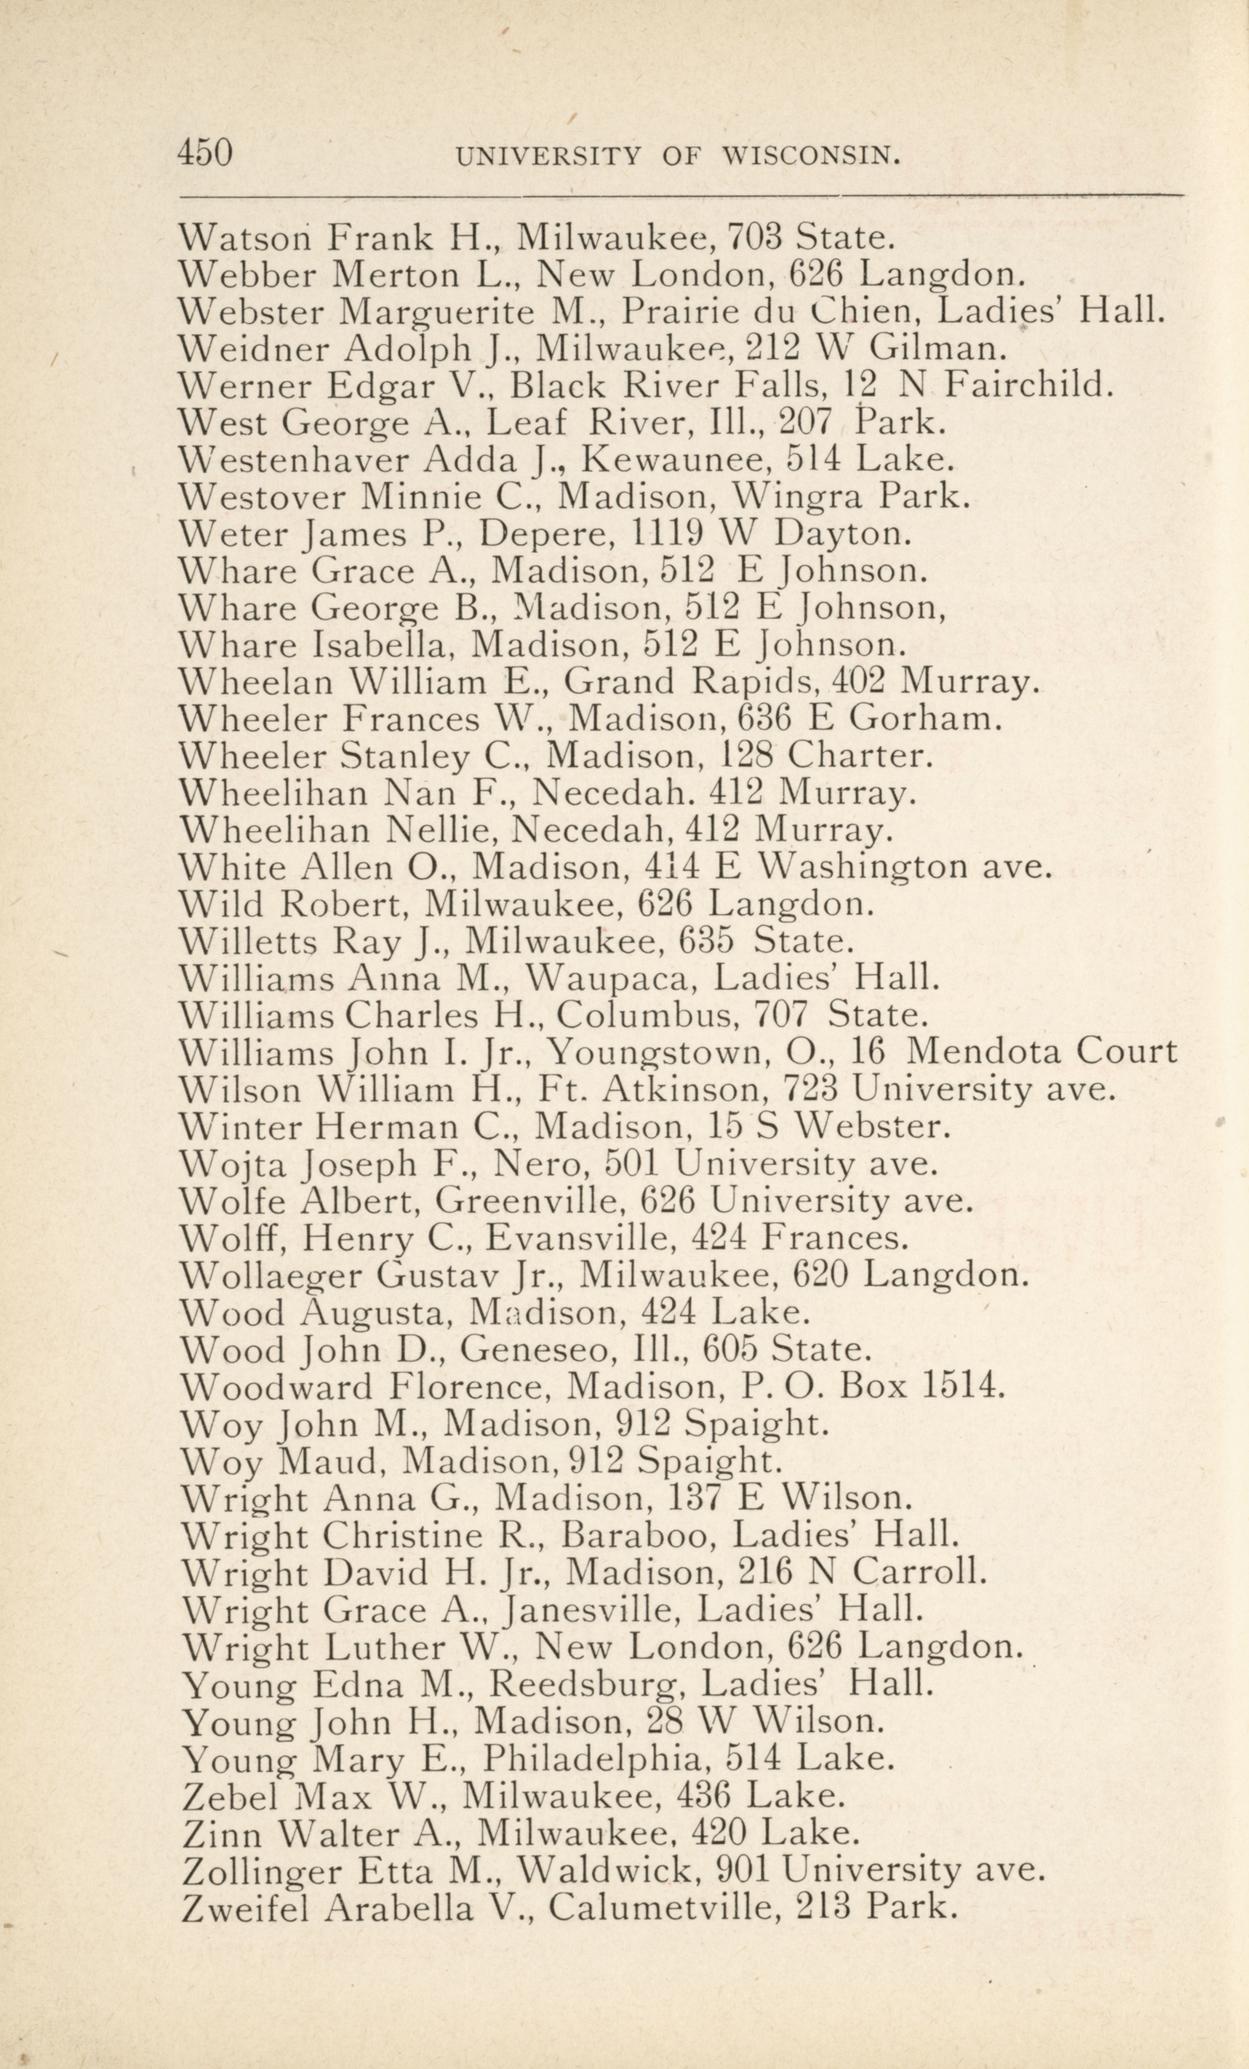 450 UNIVERSITY OF WISCONSIN.
Watson Frank H., Milwaukee, 703 State.
Webber Merton L., New London, 626 Langdon.
Webster Marguerite M., Prairie du Chien, Ladies' Hall.
Weidner Adolph J., Milwaukee, 212 W Gilman.
Werner Edgar V., Black River Falls, 12 N Fairchild.
West George A., Leaf River, Ill., 207 Park.
Westenhaver Adda J., Kewaunee, 514 Lake.
Westover Minnie C., Madison, Wingra Park.
Weter James P., Depere, 1119 W Dayton.
Whare Grace A., Madison, 512 E Johnson.
Whare George B., Madison, 512 E Johnson,
Whare Isabella, Madison, 512 E Johnson.
Wheelan William E., Grand Rapids, 402 Murray.
Wheeler Frances W., Madison, 636 E Gorham.
Wheeler Stanley C., Madison, 128 Charter.
Wheelihan Nan F., Necedah. 412 Murray.
Wheelihan Nellie, Necedah, 412 Murray.
White Allen O., Madison, 414 E Washington ave.
Wild Robert, Milwaukee, 626 Langdon.
Willetts Ray J., Milwaukee, 635 State.
Williams Anna M., Waupaca, Ladies' Hall.
Williams Charles H., Columbus, 707 State.
Williams John I. Jr., Youngstown, O., 16 Mendota Court
Wilson William H., Ft. Atkinson, 723 University ave.
Winter Herman C., Madison, 15 S Webster.
Wojta Joseph F., Nero, 501 University ave.
Wolfe Albert, Greenville, 626 University ave.
Wolff, Henry C., Evansville, 424 Frances.
Wollaeger Gustav Jr., Milwaukee, 620 Langdon.
Wood Augusta, Madison, 424 Lake.
Wood John D., Geneseo, Ill., 605 State.
Woodward Florence, Madison, P. O. Box 1514.
Woy John M., Madison, 912 Spaight.
Woy Maud, Madison, 912 Spaight.
Wright Anna G., Madison, 137 E Wilson.
Wright Christine R., Baraboo, Ladies' Hall.
Wright David H. Jr., Madison, 216 N Carroll.
Wright Grace A., Janesville, Ladies' Hall.
Wright Luther W., New London, 626 Langdon.
Young Edna M., Reedsburg, Ladies' Hall.
Young John H., Madison, 28 W Wilson.
Young Mary E., Philadelphia, 514 Lake.
Zebel Max W., Milwaukee, 436 Lake.
Zinn Walter A., Milwaukee, 420 Lake.
Zollinger Etta M., Waldwick, 901 University ave.
Zweifel Arabella V., Calumetville, 213 Park.